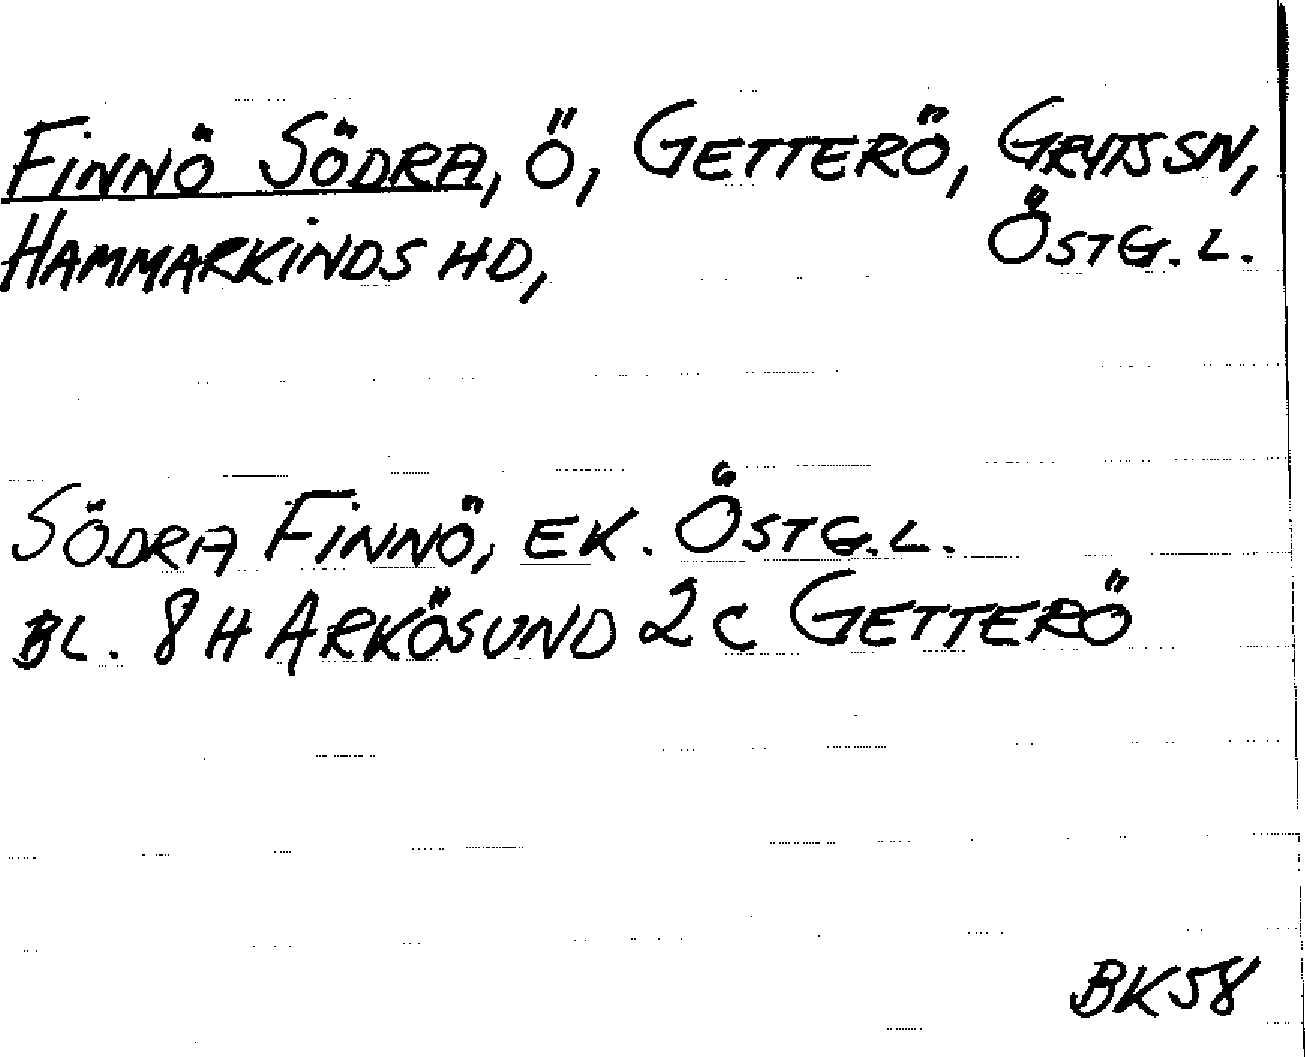 FINNÖ SÖDRA, Ö, GETTERÖ, GRYTS SN,
HAMMARKINDS HD, ÖSTG. L.
SÖDRA FINNÖ, EK. ÖSTG. L.
BL. 8 H ARKÖSUND 2 C GETTERÖ
BK58